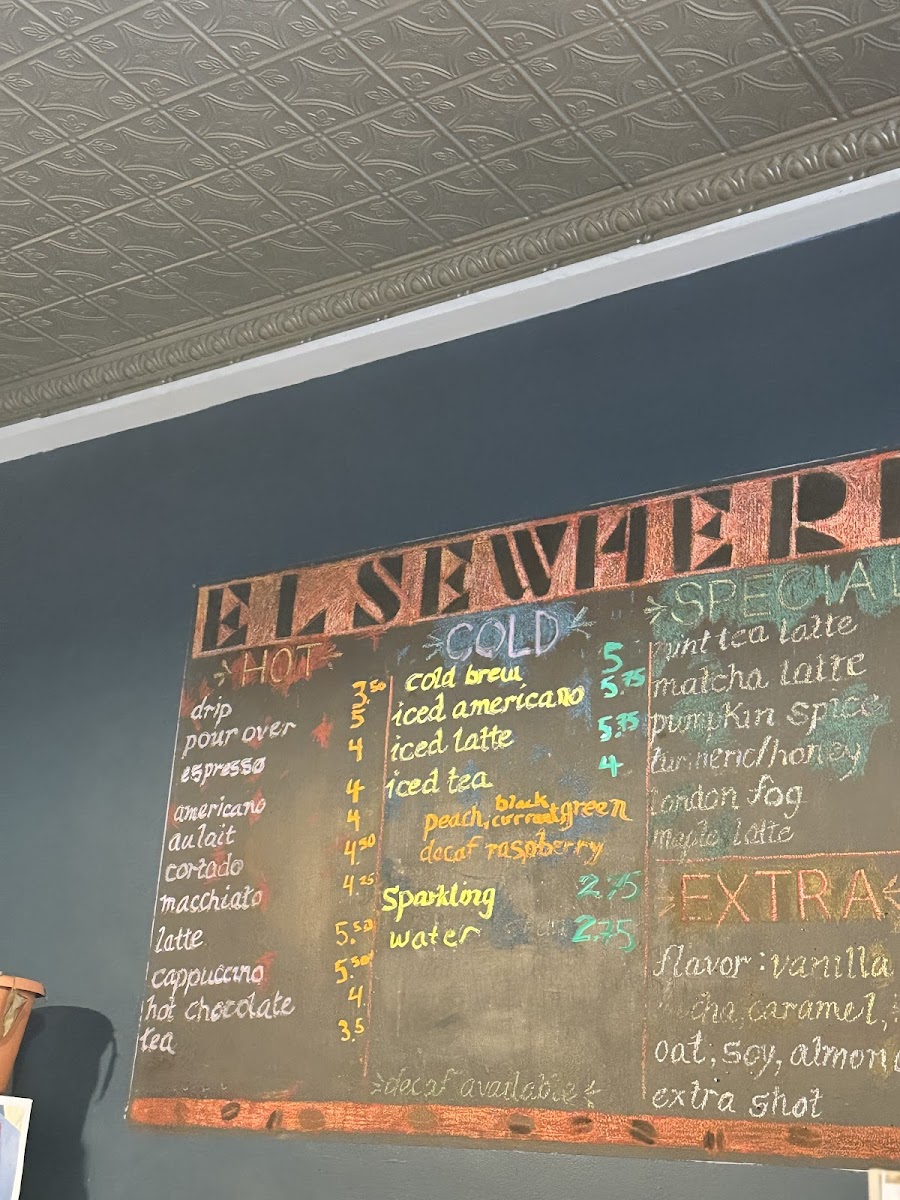 ELSEWHER
HOT
drip 3.50
pour over 5
espresso 4
americano 4
au lait 4
cortado 4.50
macchiato 4.25
latte 5.50
cappuccino 5.50
hot chocolate 4
tea 3.5
COLD
cold brew 5
iced americano 5.75
iced latte 5.75
iced tea 4
peach, black currant, green
decaf raspberry
Sparkling 2.75
water 2.75
decaf available
SPECIAL
mint tea latte
matcha latte
pumpkin spice
turmeric/honey
london fog
maple latte
EXTRA
flavor: vanilla
caramel,
oat, soy, almon
extra shot